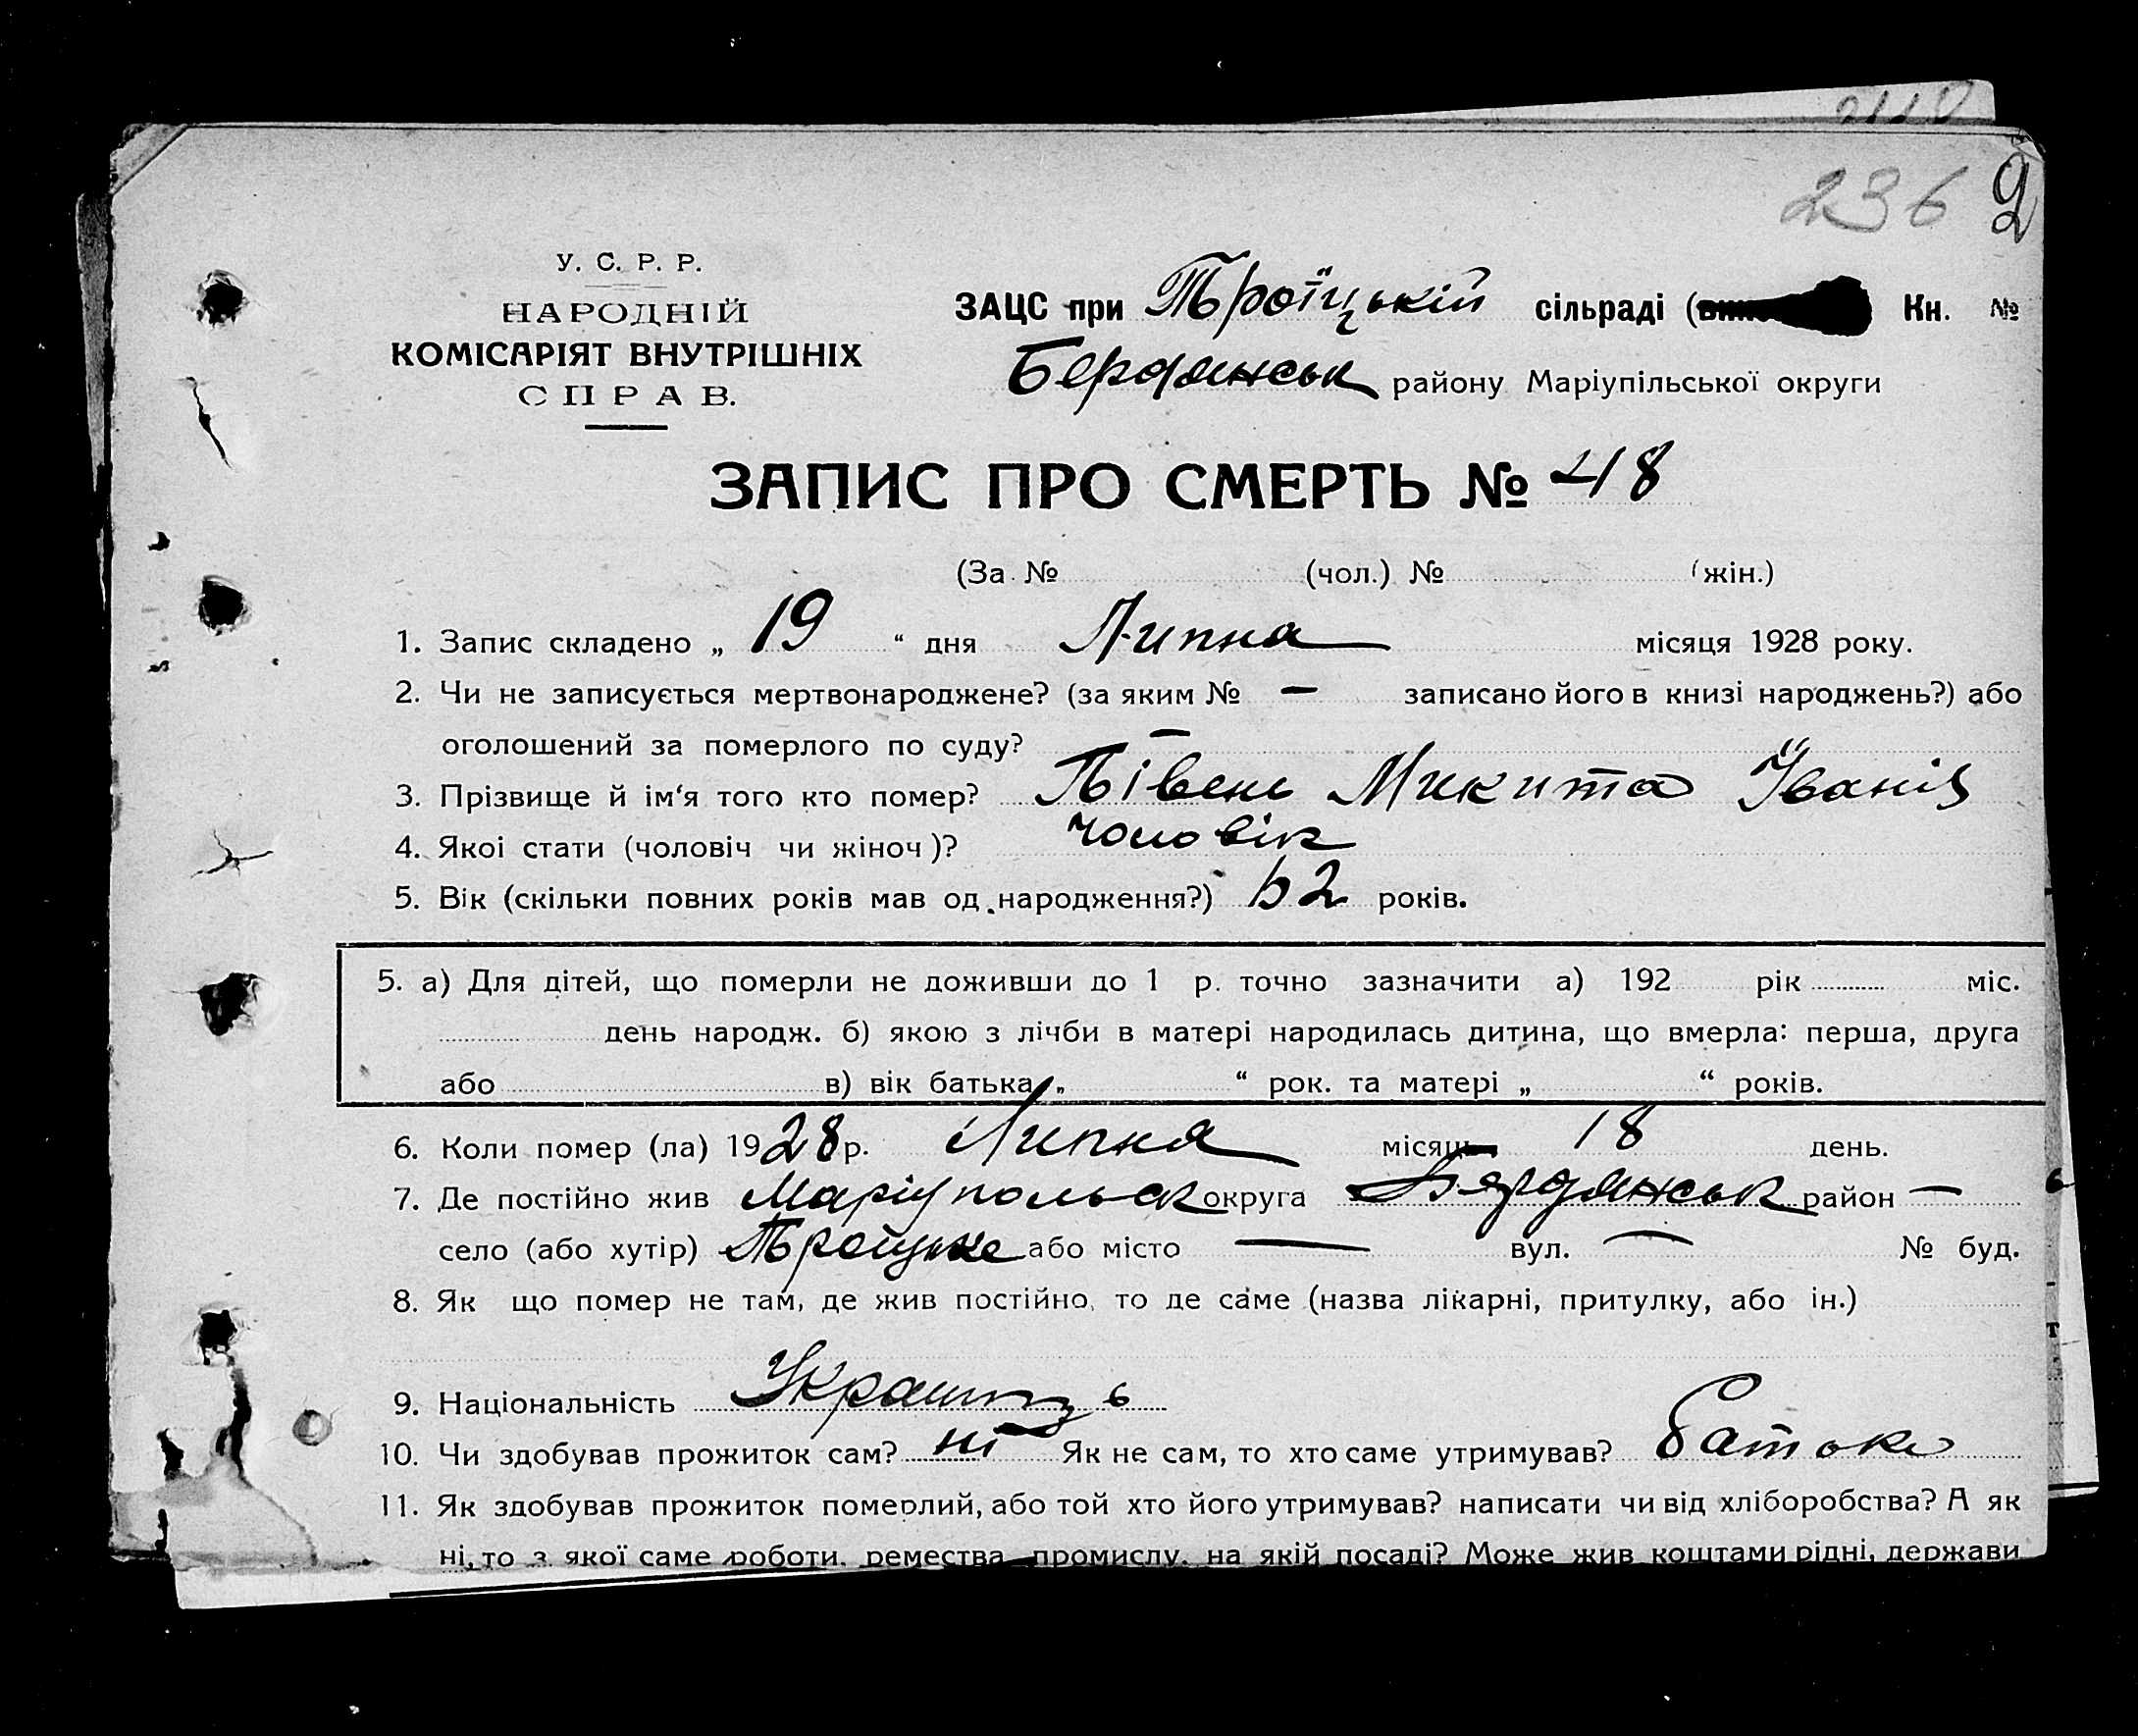 236 2
У. С. Р. Р.
НАРОДНІЙ
КОМІСАРІЯТ ВНУТРІШНІХ
СПРАВ.
ЗАЦС при Троїцькій сільраді ( Кн. №
Бердянськ району Маріупільської округи
ЗАПИС ПРО СМЕРТЬ № 48
(За № (чол.) № (жін.)
1. Запис складено „ 19 “ дня Липня місяця 1928 року.
2. Чи не записується мертвонароджене? (за яким № — записано його в книзі народжень?) або
оголошений за померлого по суду? —
3. Прізвище й ім‘я того кто помер? Півень Микита Іванів
4. Якоі стати (чоловіч чи жіноч)? чоловік
5. Вік (скільки повних років мав од народження?) 2 років.
5. а) Для дітей, що померли не доживши до 1 р. точно зазначити а) 192 рік міс.
день народж. б) якою з лічби в матері народилась дитина, що вмерла: перша, друга
або в) вік батька „ “ рок. та матері „ “ років.
6. Коли помер (ла) 1928 р. Липня місяць 18 день.
7. Де постійно жив Маріупольськ округа Бердянськ район —
село (або хутір) Троїцьке або місто — вул. — № буд.
8. Як що помер не там, де жив постійно, то де саме (назва лікарні, притулку, або ін.)
9. Національність Українець
10. Чи здобував прожиток сам? ні Як не сам, то хто саме утримував? батько
11. Як здобував прожиток померлий, або той хто його утримував? написати чи від хліборобства? А як
ні, то з якої саме роботи, ремества, промислу, на якій посаді? Може жив коштами рідні, держави